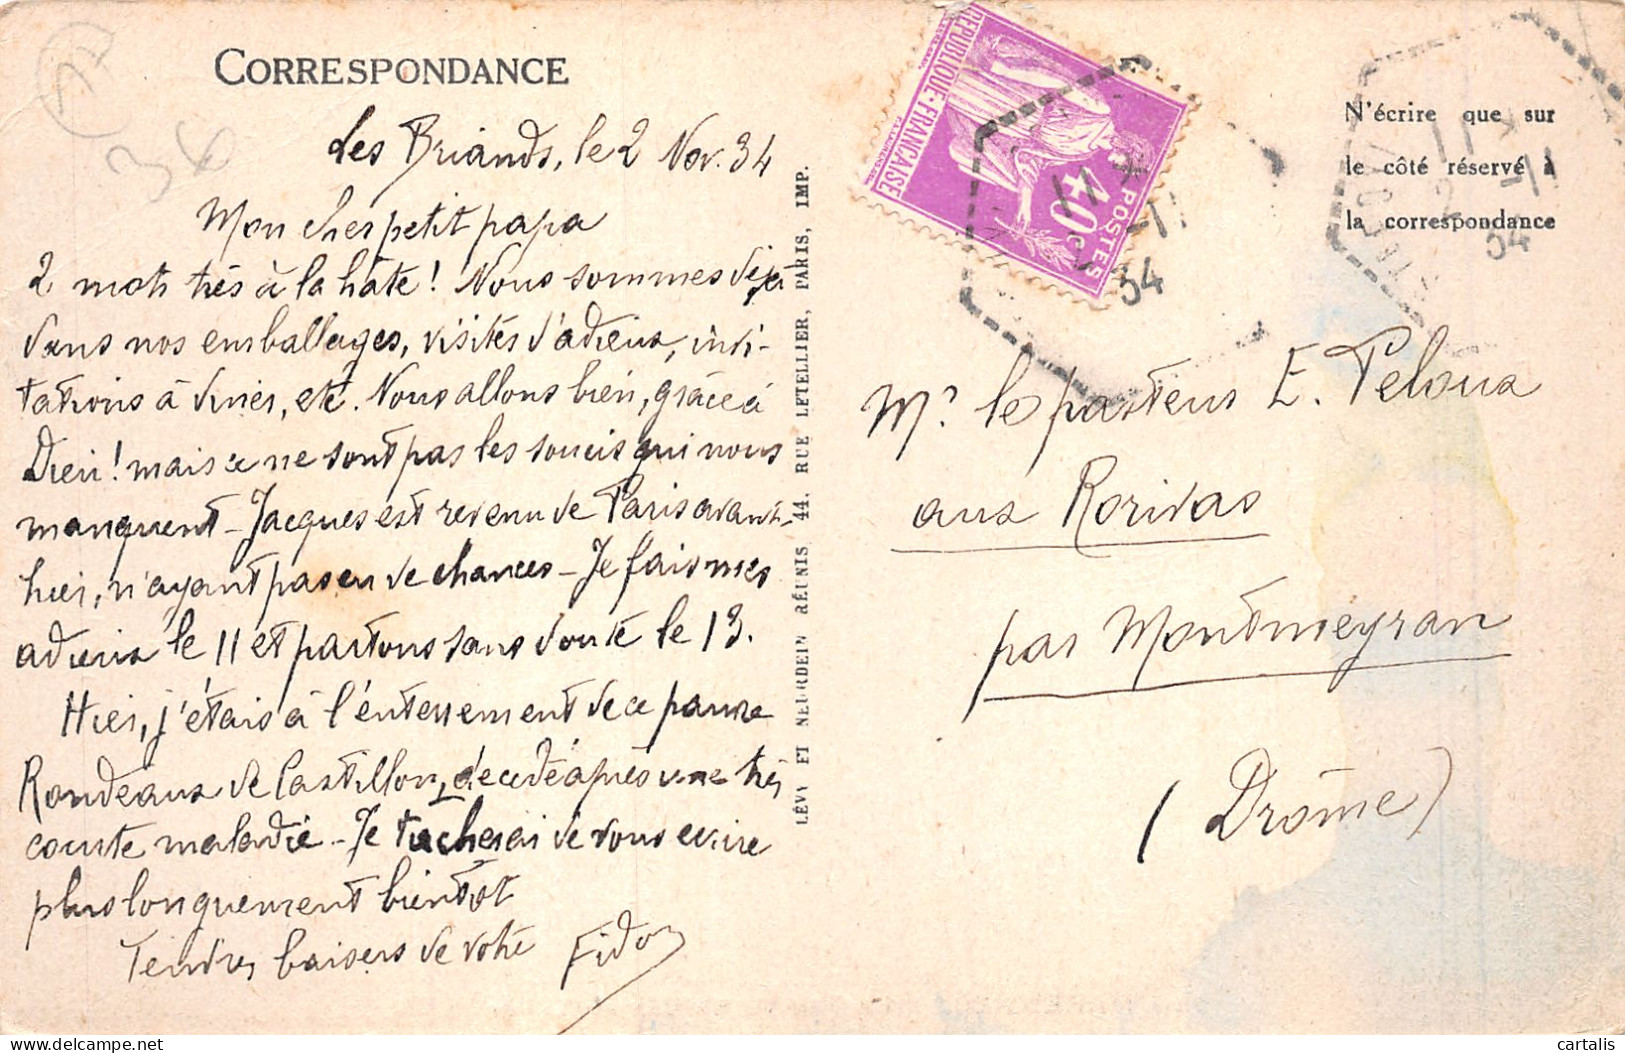 CORRESPONDANCE
36
Les Briands, le 2 Nov. 34
Mon cher petit papa
2 mots très à la hâte ! Nous sommes déjà
dans nos emballages, visites d'adieux, invi-
tations à dîner, etc. Nous allons bien, grâce à
Dieu ! mais ce ne sont pas les soucis qui nous
manquent - Jacques est revenu de Paris avant-
hier, n'ayant pas eu de chances - Je fais mes
adieux le 11 et partons sans doute le 13.
Hier, j'étais à l'enterrement de ce pauvre
Rondeaux de Castillon, décédé après une très
courte maladie - Je tacherai de vous ecrire
plus longuement bientôt
Tendres baisers de votre
LÉVY ET NEURDEIN RÉUNIS 44, RUE LETELLIER, PARIS, IMP.
REPUBLIQUE·FRANÇAISE
POSTES
40c
11 *
-11
34
N'écrire que sur
le côté réservé à
la correspondance
11 *
2 -11
34
Mr le pasteur E. Peloux
aux Rorivas
par Montmeyran
(Drôme)
cartalis
delcampe.net